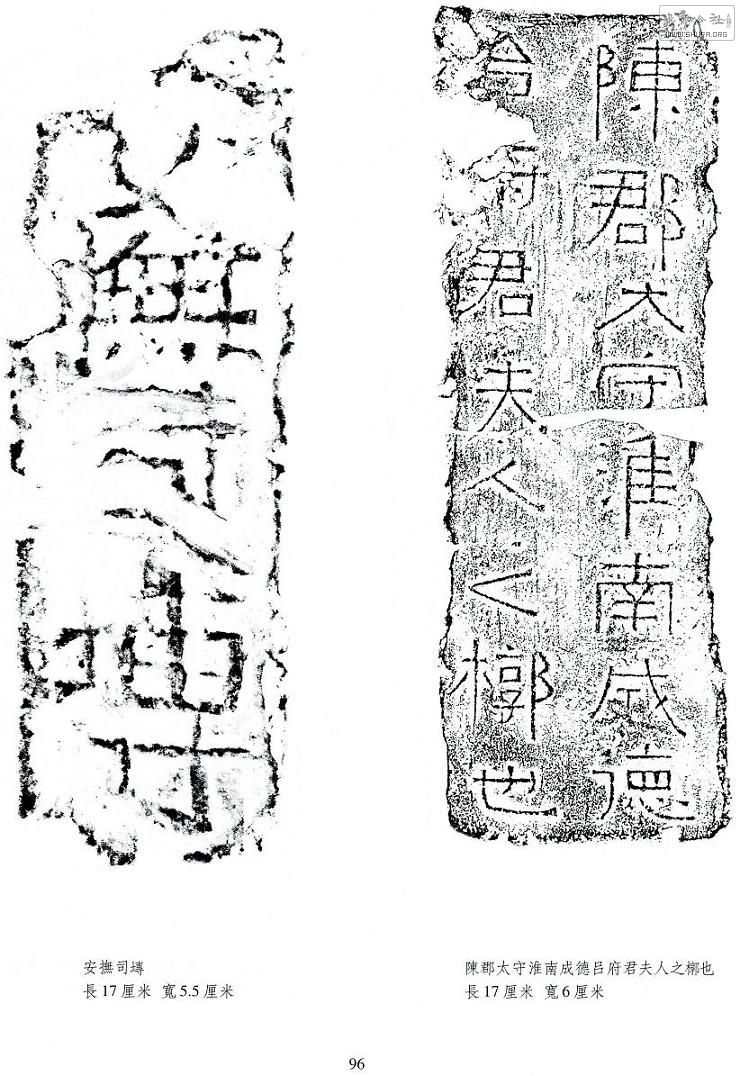 WWW.SHUFA.ORG
陳郡大守淮南成德
府君夫人之槨也
撫司塼
陳郡太守淮南成德吕府君夫人之槨也
長17厘米 寬6厘米
安撫司塼
長17厘米 寬5.5厘米
96